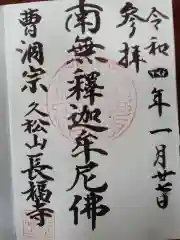 令和四年一月廿七日
參拝
南無釋迦牟尼佛
曹洞宗
久松山長福寺